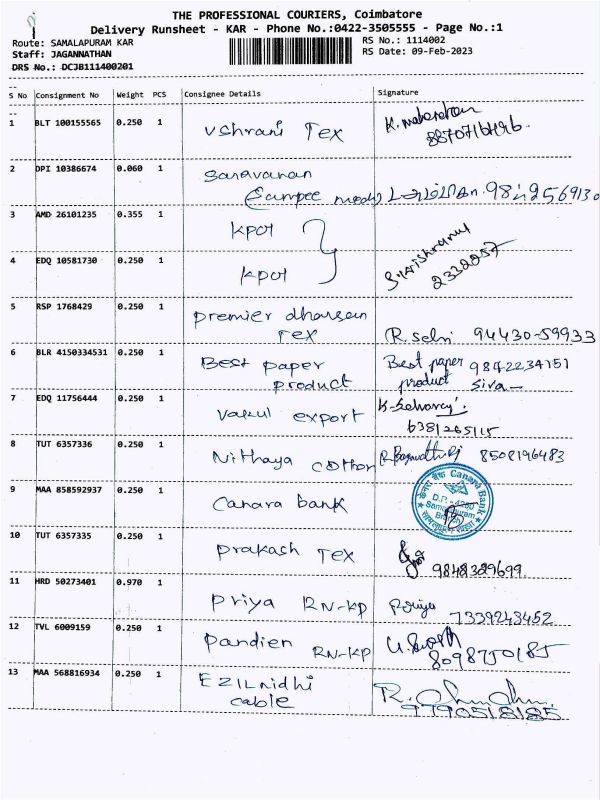 THE PROFESSIONAL COURIERS, Coimbatore
Delivery Runsheet - KAR - Phone No.:0422-3505555 - Page No.:1
Route: SAMALAPURAM KAR RS No.: 1114002
Staff: JAGANNATHAN RS Date: 09-Feb-2023
DRS No.: DCJB111400201
S No Consignment No Weight PCS Consignee Details Signature
1 BLT 100155565 0.250 1 Vshrani Tex
8870716496
2 DPI 10386674 0.060 1 Saravanan
3 AMD 26101235 0.355 1 kpot
4 EDQ 10581730 0.250 1 kpot
2332257
5 RSP 1768429 0.250 1 premier dharsan
Tex R. selvi 94430-59933
6 BLR 4150334531 0.250 1 Best paper Best paper 9842234151
product product siva
7 EDQ 11756444 0.250 1 Vakul export
6381265115
8 TUT 6357336 0.250 1 Nithaya cotton 8508196483
9 MAA 858592937 0.250 1 Canara bank
Canara Bank
Samalapuram
Branch
10 TUT 6357335 0.250 1 prakash Tex
9848329699
11 HRD 50273401 0.970 1 Priya RN-KP Priya
7339243452
12 TVL 6009159 0.250 1 Pandien RN-KP
8098750185
13 MAA 568816934 0.250 1 EZILnidhi
cable 9790518185